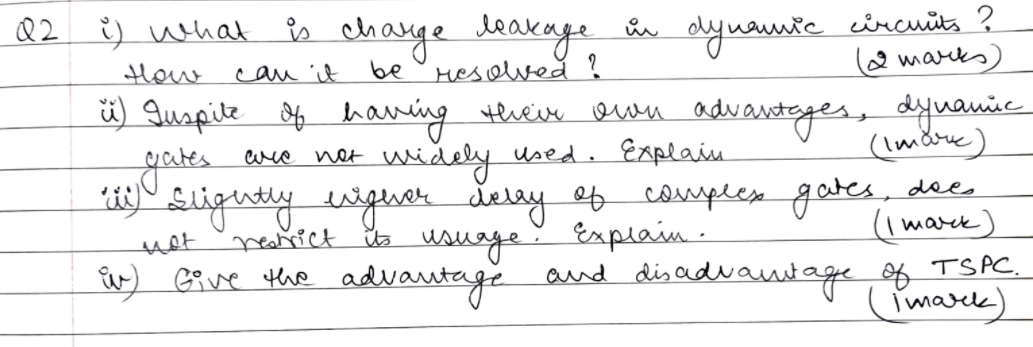 Q2 i) What is charge leakage in dynamic circuits?
How can it be resolved? (2 marks)
ii) Inspite of having their own advantages, dynamic
gates are not widely used. Explain (1 mark)
iii) Slightly higher delay of complex gates, does
not restrict its usuage. Explain. (1 mark)
iv) Give the advantage and disadvantage of TSPC.
(1 mark)